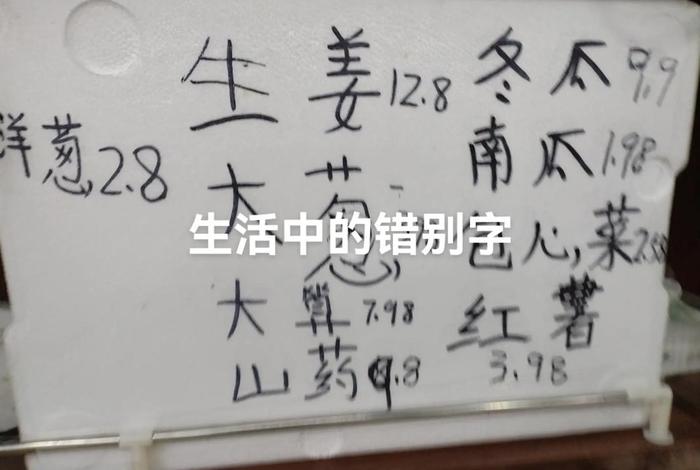 生姜12.8 冬瓜9.9
洋葱2.8 大葱 南瓜1.98
生活中的错别字
包心菜2.58
大算7.98 红薯3.98
山药9.8